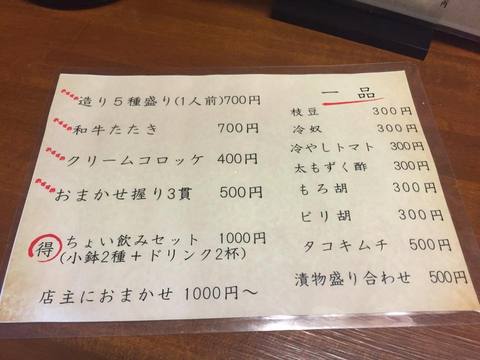 造り5種盛り(1人前)700円
和牛たたき 700円
クリームコロッケ 400円
おまかせ握り3貫 500円
得 ちょい飲みセット 1000円
(小鉢2種+ドリンク2杯)
店主におまかせ 1000円〜
一品
枝豆 300円
冷奴 300円
冷やしトマト 300円
太もずく酢 300円
もろ胡 300円
ピリ胡 300円
タコキムチ 500円
漬物盛り合わせ 500円